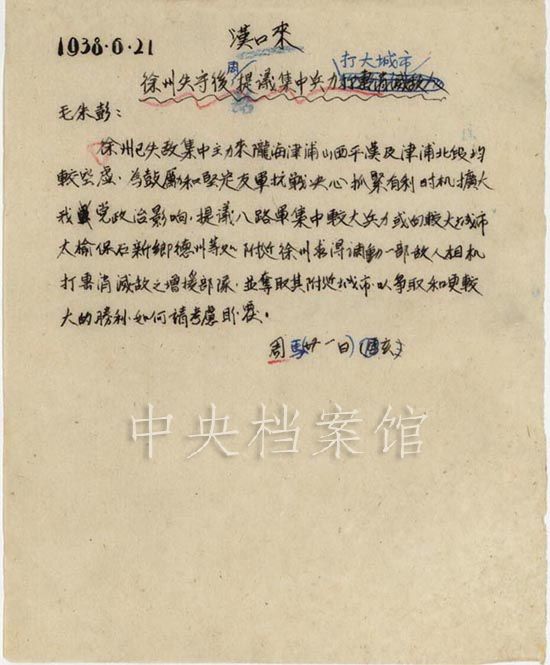 1938.6.21
漢口來
周
打大城市
徐州失守後提議集中兵力打击消滅敌人
毛朱彭:
徐州已失敌集中主力來隴海津浦山西平漢及津浦北段均
較空虛,為鼓励和堅定友軍抗戰决心抓紧有利时机擴大
我党政治影响,提議八路軍集中較大兵力或向較大城市
太榆保石新鄉德州等处附近徐州求得调動一部敌人相机
打击消滅敌之增援部派,並奪取其附近城市,以争取和更較
大的勝利.如何請考慮盼覆。
周馬(廿一日)
中央档案馆